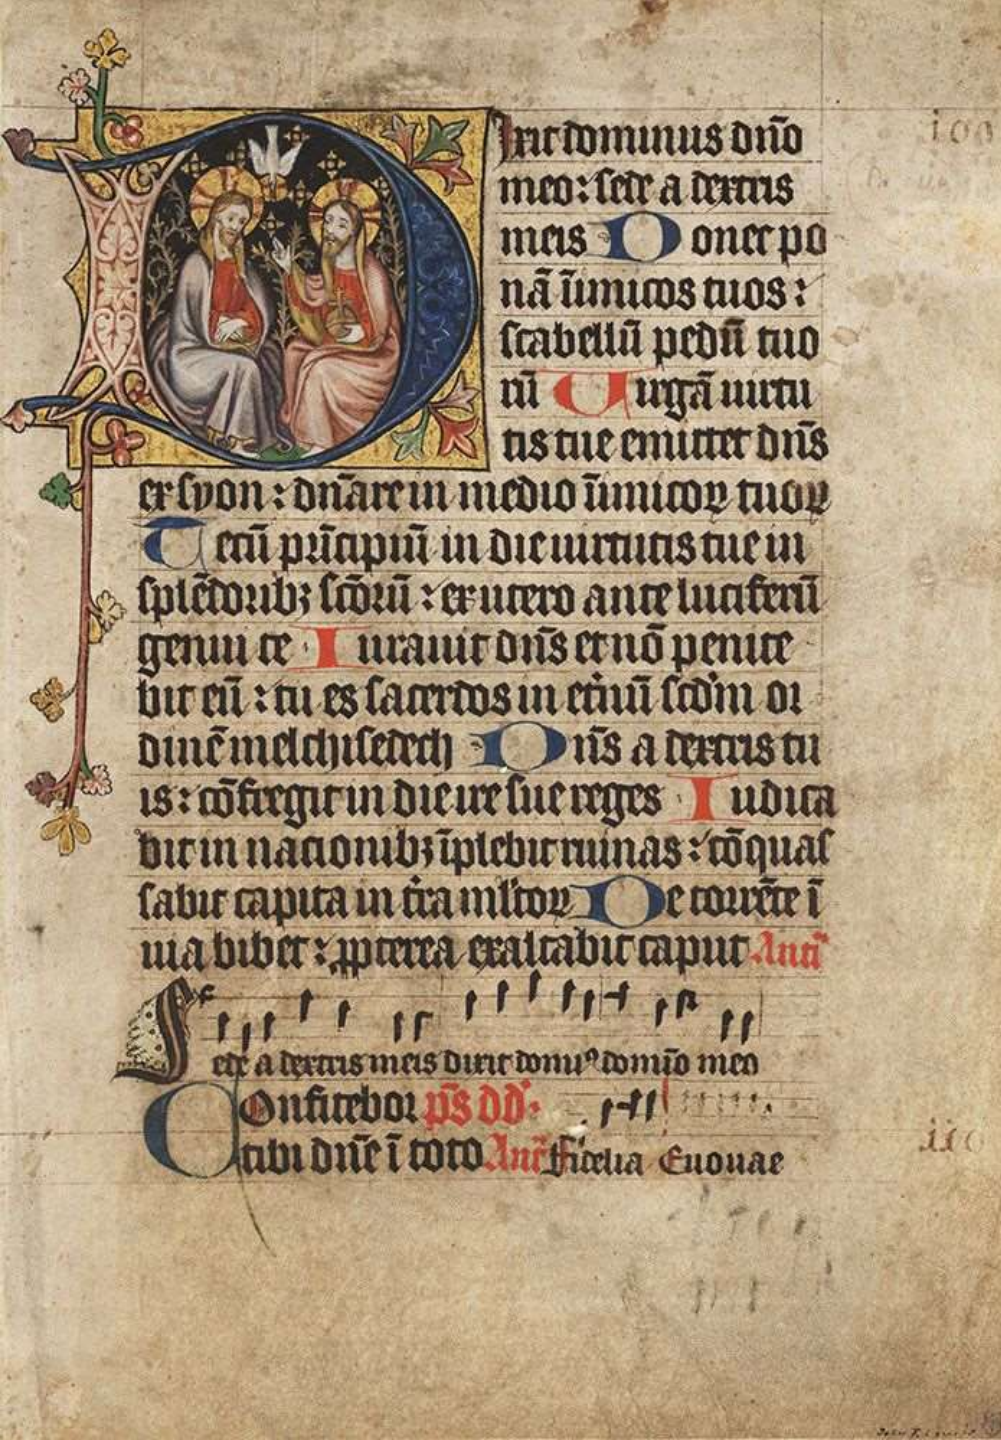 Dixit dominus dn̄o
meo : sede a dextris
meis Donec po
nā īimicos tuos :
scabellū pedū tuo
rū Virgā uirtu
tis tue emittet dn̄s
ex syon : dn̄are in medio īimicoꝝ tuoꝝ
Tecū prīcipiū in die uirtutis tue in
splēdoribꝫ scōrū : ex utero ante luciferū
genui te Iurauit dn̄s et nō penite
bit eū : tu es sacerdos in et̄nū scd̄m or
dinē melchisedech Dn̄s a dextris tu
is : cōfregit in die ire sue reges Iudica
bit in nacionibꝫ īplebit ruinas : cōquas
sabit capita in t̄ra ml̄toꝝ De torrēte ī
uia bibet : ꝓpterea exaltabit caput Antī
Sede a dextris meis dixit domiꝰ domīo meo
Confitebor ps̄ dd̄.
tibi dn̄e ī toto Anī Fidelia Euouae